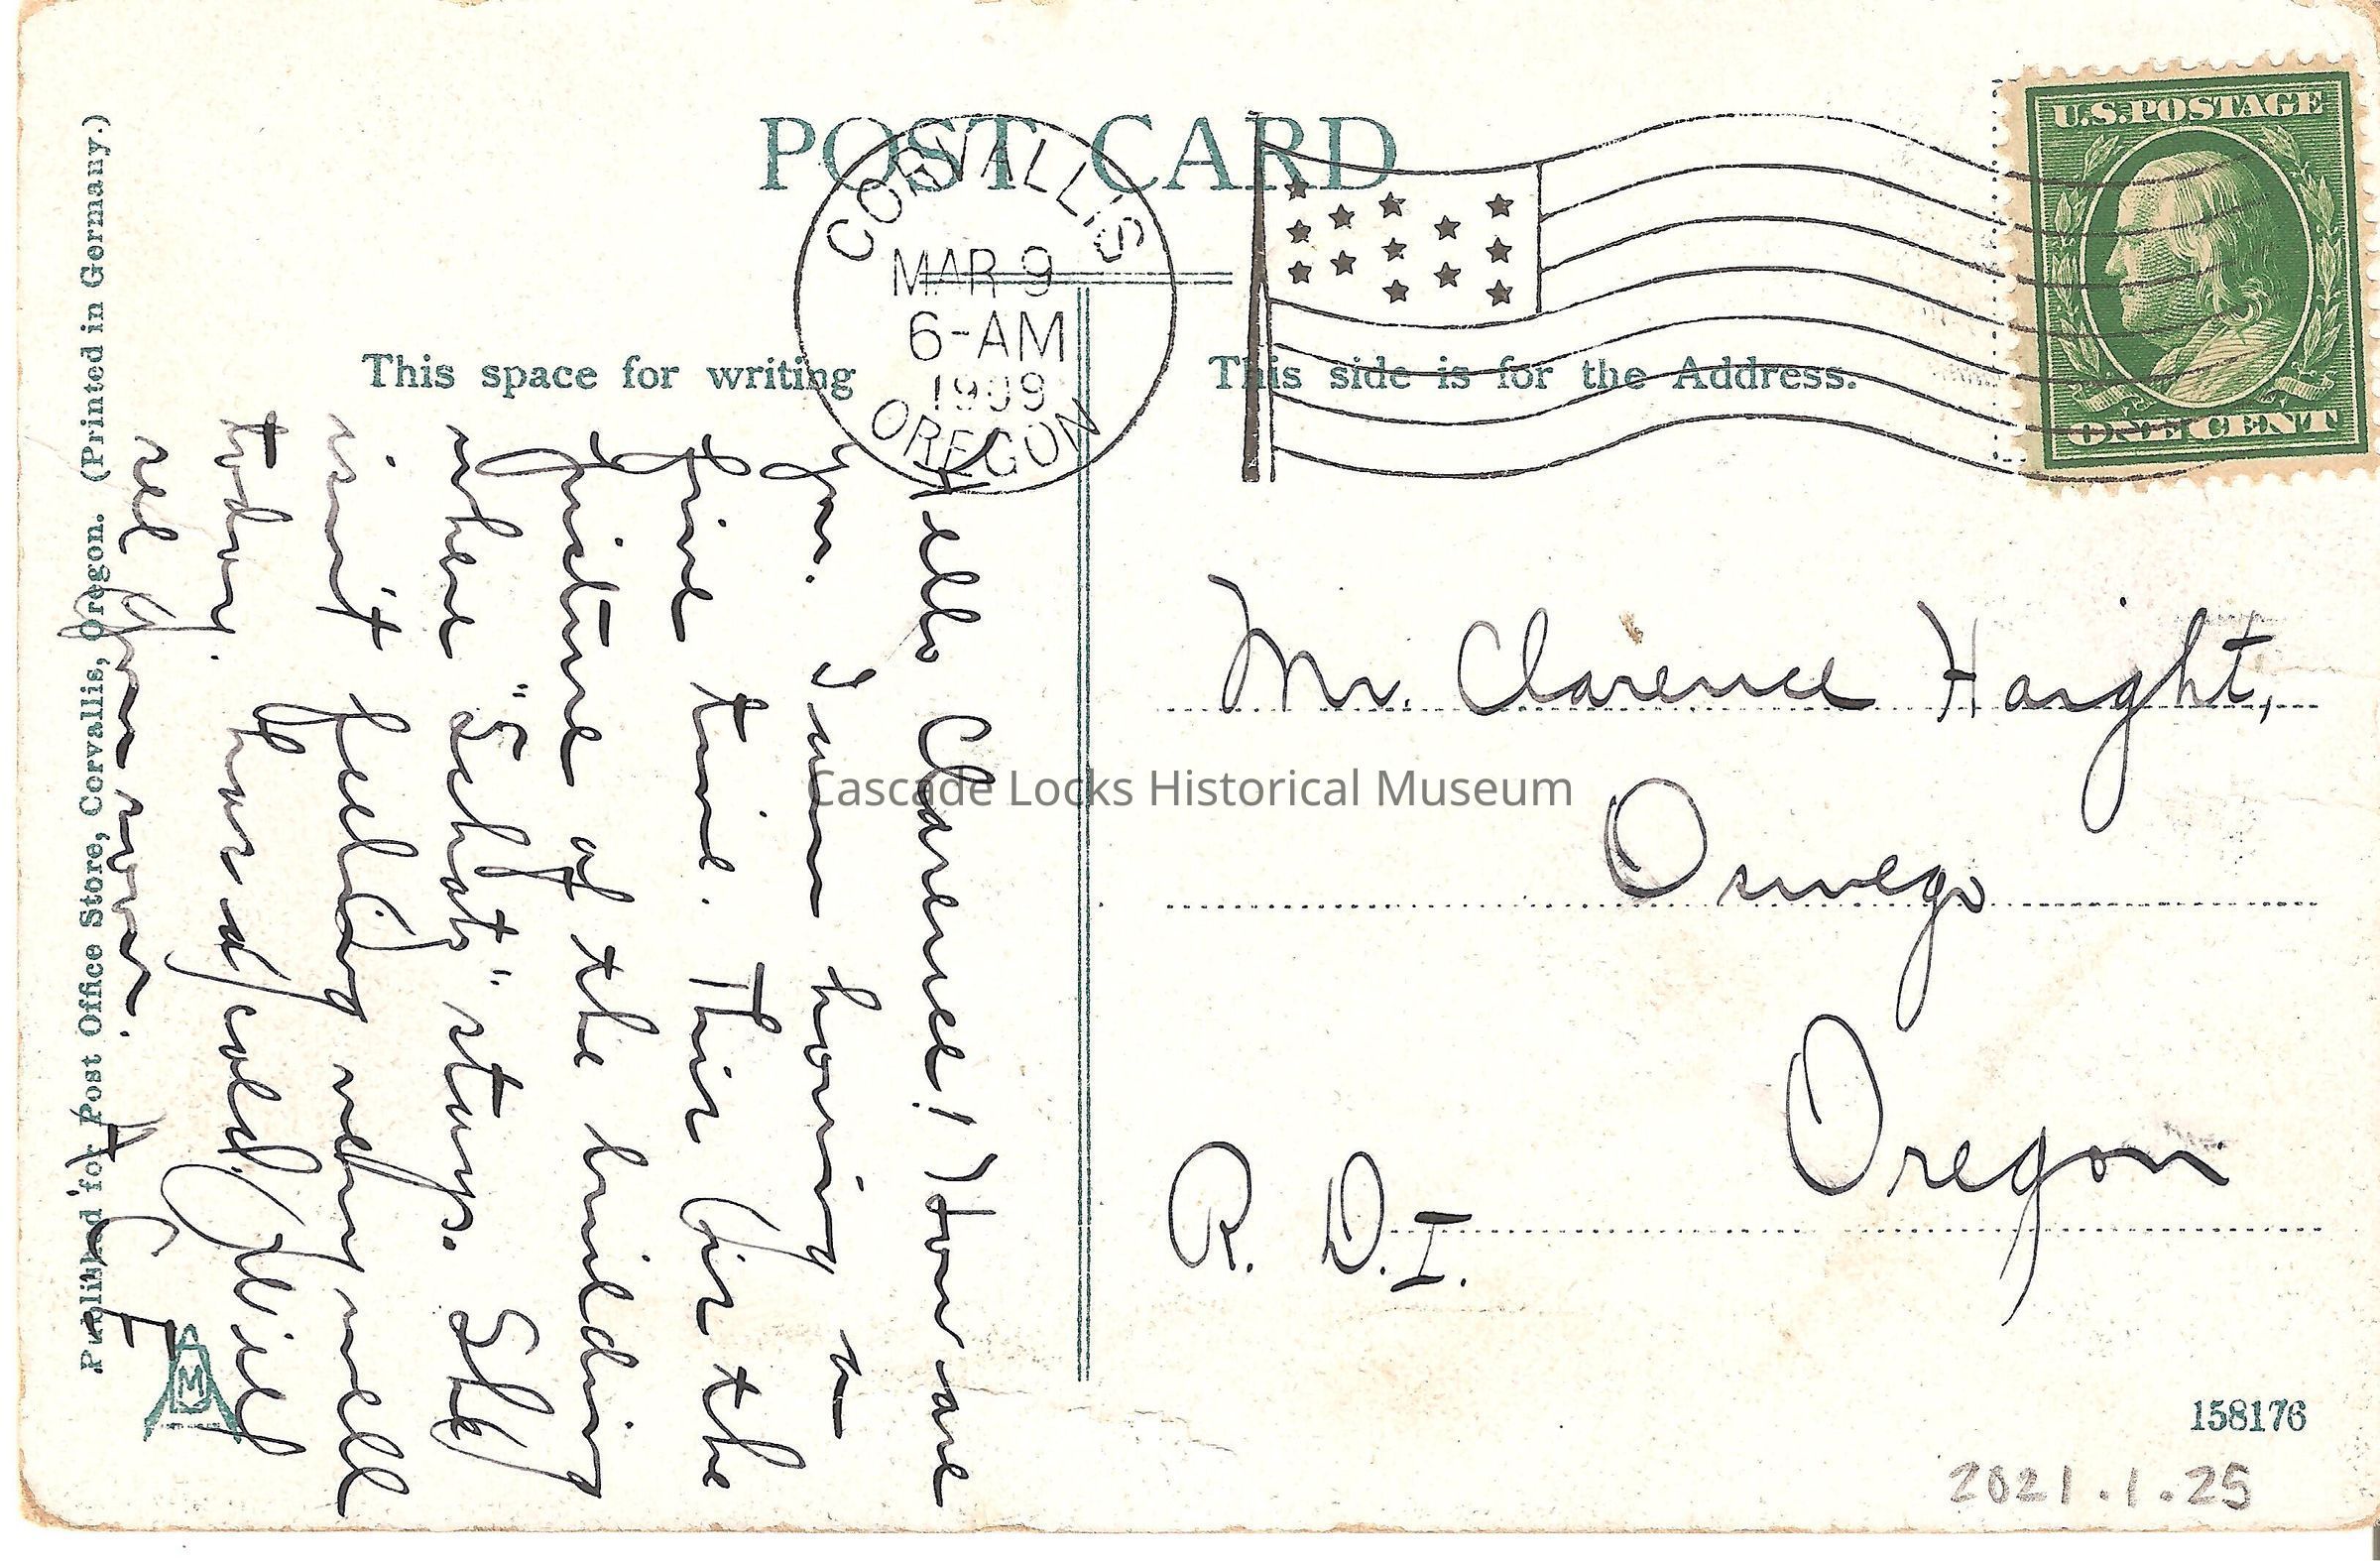 POST CARD
CORVALLIS
MAR 9
6-AM
1909
OREGON
U.S. POSTAGE
ONE CENT
This space for writing
This side is for the Address.
Hello Clarence! How are
you. I am having a
fine time. This is the
picture of the building
where "Schatz" stays. She
isn't feeling very well
today. Has a cold. Will
see you soon.
A. C. F.
Mr. Clarence Haight,
Oswego
Oregon
R. D. I.
Published for Post Office Store, Corvallis, Oregon. (Printed in Germany.)
M
158176
2021.1.25
Cascade Locks Historical Museum